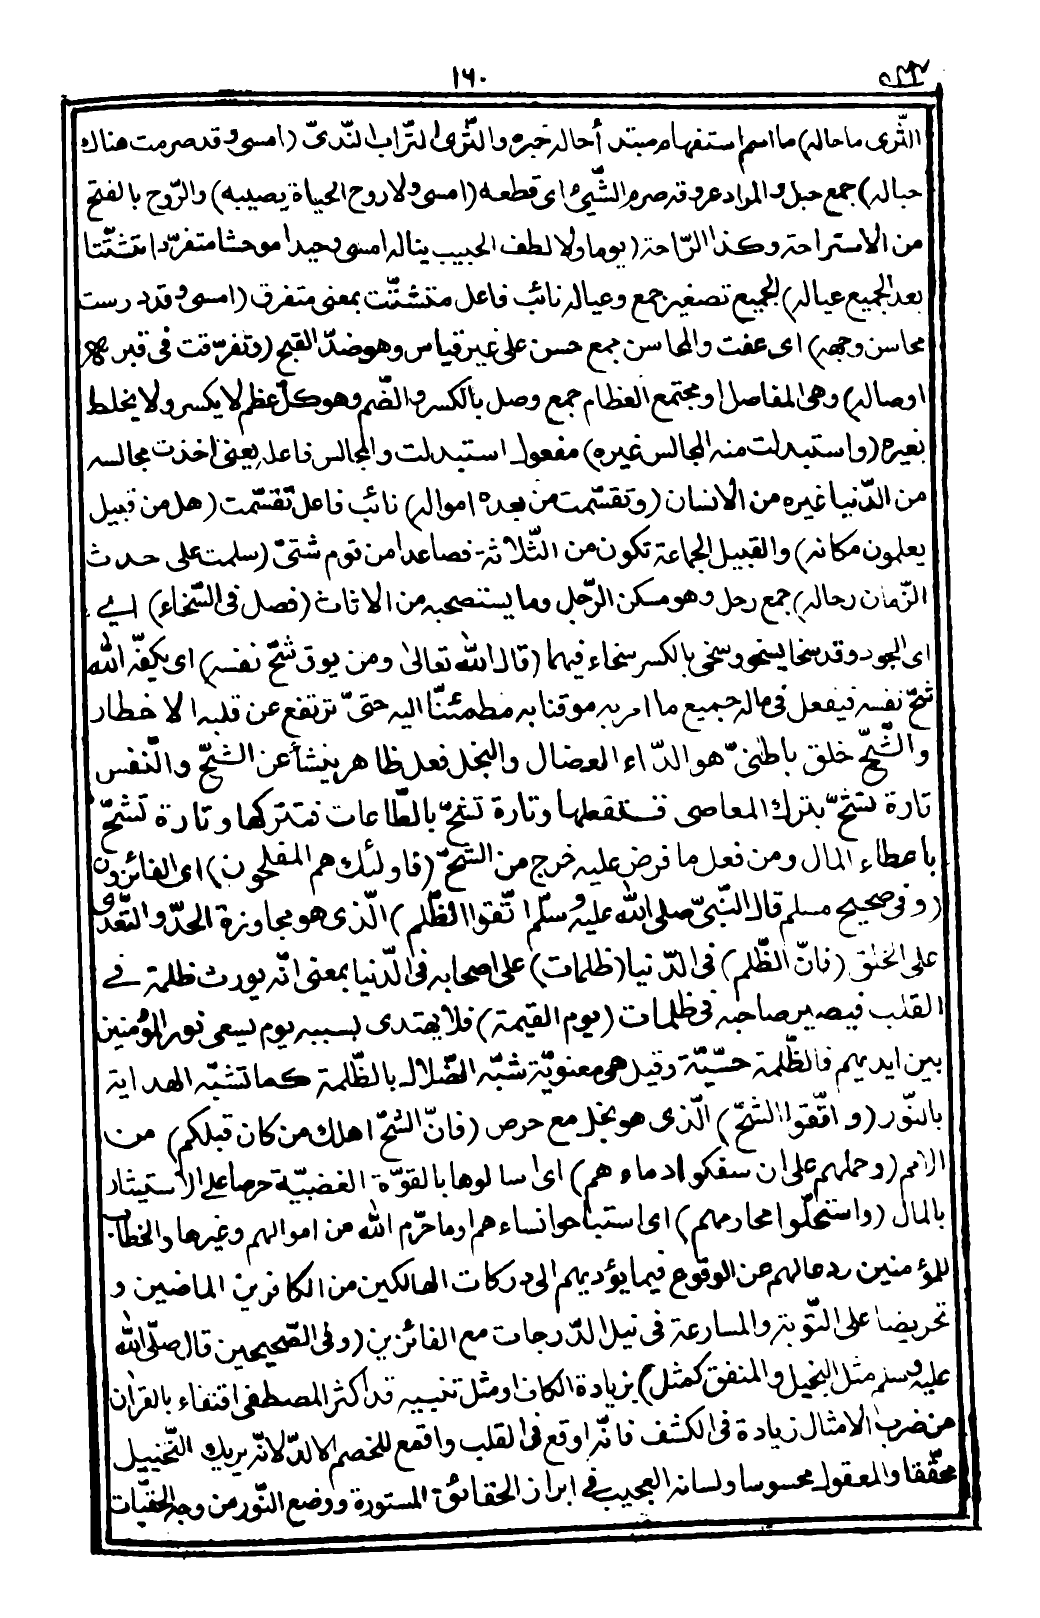 ١٦٠
الثّرى ما حاله) ما اسم استفهام مبتدأ حاله خبره والثّرى التراب النّديّ (امسى وقد صرمت هناك
حباله) جمع حبل والمواد عروقه صرم الشّيئ اى قطعه (امسى ولا روح الحياة يصيبه) والرّوح بالفتح
من الاستراحة وكذا الرّاحة (يوما ولا لطف الحبيب يناله امسى وحيدا موحشا متفرّدا متشتّتا
بعد الجميع عياله) الجميع تصغير جمع وعياله نائب فاعل متشتّت بمعنى متفرق (امسى وقد درست
محاسن وجهه) اى عفت والمحاسن جمع حسن على غير قياس وهو ضدّ القبح (وتفرّقت فى قبره
اوصاله) وهى المفاصل او مجتمع العظام جمع وصل بالكسر والضّم وهو كلّ عظم لا يكسر ولا يخلط
بغيره (واستبدلت منه المجالس غيره) مفعول استبدلت والمجالس فاعله يعنى اخذت مجالسه
من الدّنيا غيره من الانسان (وتقسّمت من بعده امواله) نائب فاعل تقسّمت (هل من قبيل
يعلمون مكانه) والقبيل الجماعة تكون من الثّلاثة فصاعدا من قوم شتىّ (سلمت على حدث
الزّمان رحاله) جمع رحل وهو مسكن الرّجل وما يستصحبه من الاثاث (فصل فى السّخاء)
اى الجود وقد سخا يسخو وسخى بالكسر سخاء فيهما (قال الله تعالى ومن يوق شحّ نفسه) اى يكفّه الله
شحّ نفسه فيفعل فى ماله جميع ما امر به موقنا به مطمئنّا اليه حتىّ ترتفع عن قلبه الاخطار
والشّحّ خلق باطنىّ هو الدّاء العضال والبخل فعل ظاهر ينشأ عن الشّحّ والنّفس
تارة تشحّ بترك المعاصى فتفعلها وتارة تشحّ بالطّاعات فتتركها وتارة تشحّ
باعطاء المال ومن فعل ما فرض عليه خرج من الشّحّ (فاولئك هم المفلحون) اى الفائزون
(وفى صحيح مسلم قال النّبىّ صلى الله عليه وسلّم اتّقوا الظّلم) الّذى هو مجاوزة الحدّ والتّعدّى
على الخلق (فانّ الظّلم) فى الدّنيا (ظلمات) على اصحابه فى الدّنيا بمعنى انّه يورث ظلمة فے
القلب فيصير صاحبه فى ظلمات (يوم القيمة) فلا يهتدى بسببه يوم يسعى نور المؤمنين
بين ايديهم فالظّلمة حسّيّة وقيل هى معنويّة شبّه الضّلال بالظّلمة كما تشبّه الهداية
بالنّور (واتّقوا الشّحّ) الّذى هو بخل مع حرص (فانّ الشّحّ اهلك من كان قبلكم) من
الامم (وحملهم على ان سفكوا دماءهم) اى اسالوها بالقوّة الغضبيّة حرصا على الاستيثار
بالمال (واستحلّوا محارمهم) اى استباحوا نساءهم او ما حرّم الله من اموالهم وغيرها والخطاب
للمؤمنين ردعالهم عن الوقوع فيما يؤديهم الى دركات الهالكين من الكافرين الماضين و
تحريضا على التّوبة والمسارعة فى نيل الدّرجات مع الفائزين (وفى الصّحيحين قال صلّى الله
عليه وسلم مثل البخيل والمنفق كمثل) بزيادة الكاف او مثل تنبيه قد اكثر المصطفى اقتفاء بالقران
من ضرب الامثال زيادة فى الكشف فانّه اوقع فى القلب واقمع للخصم الالدّ لانّه يريك التّخييل
محقّقا والمعقول محسوسا ولسانه العجيب فى ابراز الحقائق المستورة ووضع النّور من وجه الخفيّات